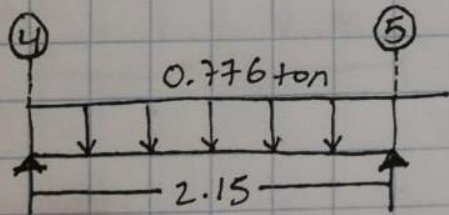 4 5
0.776 ton
2.15